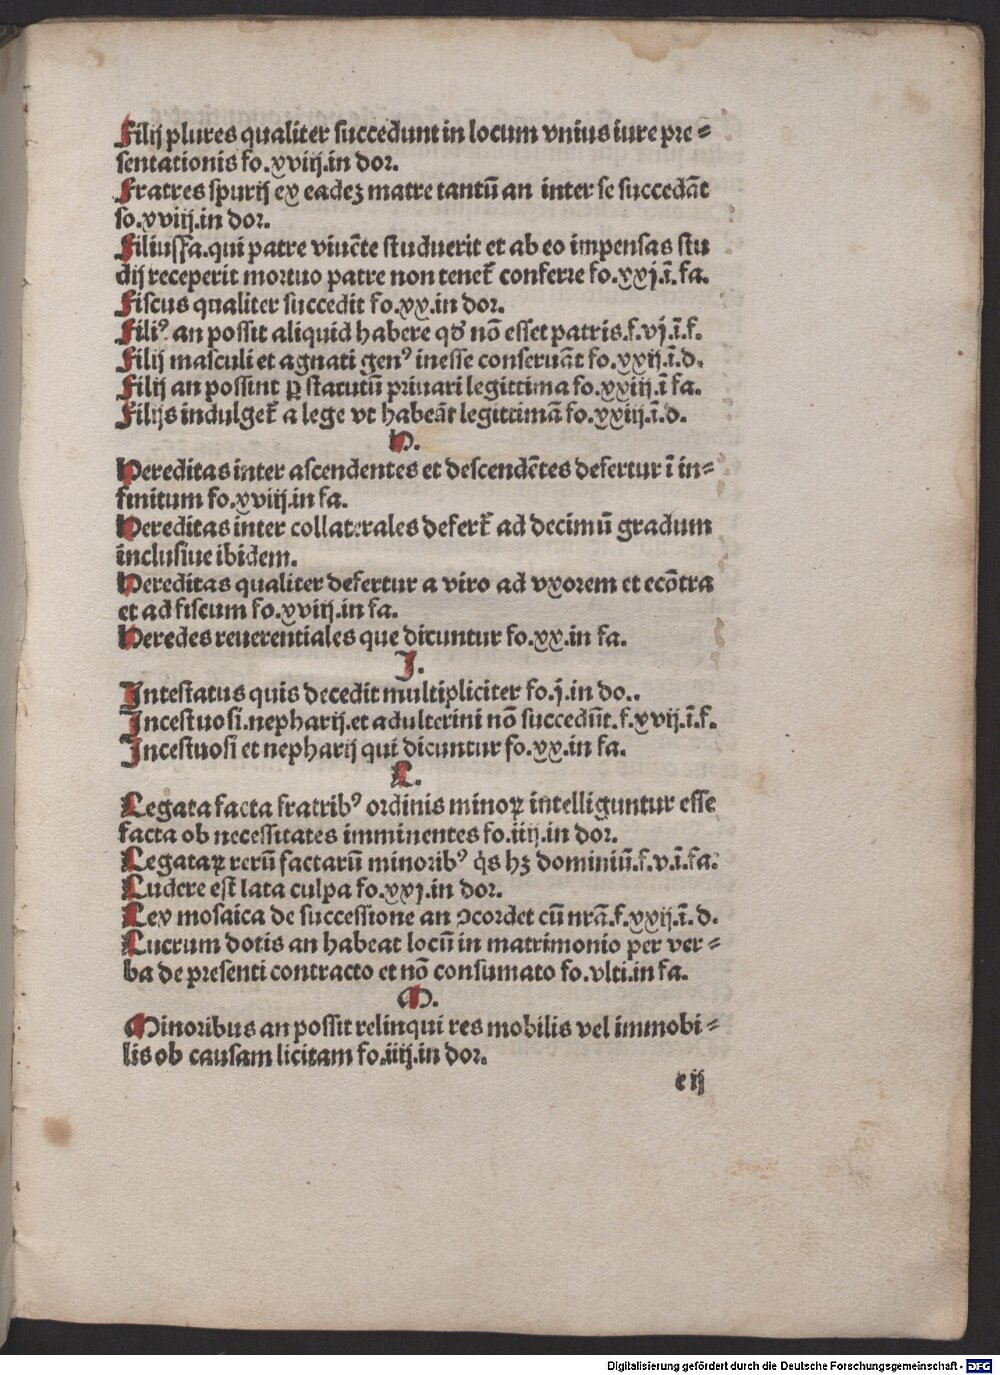 Filij plures qualiter succedunt in locum vnius iure pre⸗
sentationis fo.xviij.in dor.
Fratres spurij ex eadeʒ matre tantū an inter se succedāt
fo.xviij.in dor.
Filiusfa.qui patre viuēte studuerit et ab eo impensas stu
dij receperit mortuo patre non tenet᷑ conferre fo.xxj.ī.fa.
Fiscus qualiter succedit fo.xx.in dor.
Fili⁹ an possit aliquid habere qđ nō esset patris.f.vj.ī.f.
Filij masculi et agnati gen⁹ inesse conseruāt fo.xxij.ī.d.
Filij an possint ꝑ statutū priuari legittima fo.xxiij.ī fa.
Filijs indulget᷑ a lege vt habeāt legittimā fo.xxiij.ī.d.
H.
Hereditas inter ascendentes et descendētes defertur ī in⸗
finitum fo.xviij.in fa.
Hereditas inter collaterales defert᷑ ad decimū gradum
inclusiue ibidem.
Hereditas qualiter defertur a viro ad vxorem et ecōtra
et ad fiscum fo.xviij.in fa.
Heredes reuerentiales que dicuntur fo.xx.in fa.
I.
Intestatus quis decedit multipliciter fo.j.in do..
Incestuosi.nepharij.et adulterini nō succedūt.f.xvij.ī.f.
Incestuosi et nepharij qui dicuntur fo.xx.in fa.
L.
Legata facta fratrib⁹ ordinis minoꝝ intelliguntur esse
facta ob necessitates imminentes fo.iiij.in dor.
Legataꝝ rerū factarū minorib⁹ q̄s hʒ dominiū.f.v.ī.fa.
Ludere est lata culpa fo.xxj.in dor.
Lex mosaica de successione an ↄcordet cū nrā.f.xxij.ī.d.
Lucrum dotis an habeat locū in matrimonio per ver⸗
ba de presenti contracto et nō consumato fo.vlti.in fa.
M.
Minoribus an possit relinqui res mobilis vel immobi⸗
lis ob causam licitam fo.iiij.in dor.
e ij
Digitalisierung gefördert durch die Deutsche Forschungsgemeinschaft - DFG